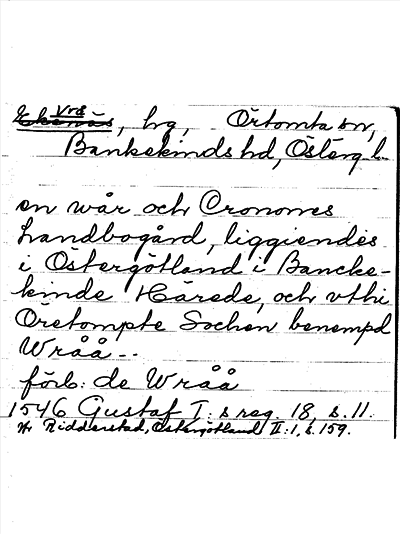 Vrå
Ekenäs, hg, Örtomta sn,
Bankekinds hd, Österg. l.
en wår och Cronones
Landbogård, liggiendes
i Östergötland i Bancke-
kinde Härede, och vthi
Oretompte Sochen benempd
Wråå..
förb: de Wråå
1546 Gustaf I:s reg. 18, s. 11.
Ridderstad, Östergötland II:1, s. 159.